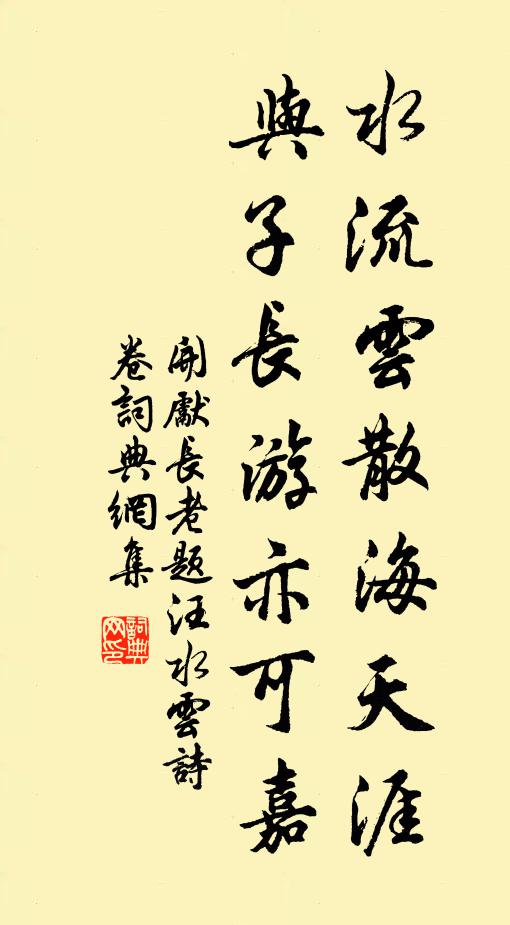 水流雲散海天涯
與子長游亦可嘉
開獻長老題汪水雲詩
卷詞典網集
詞典網印